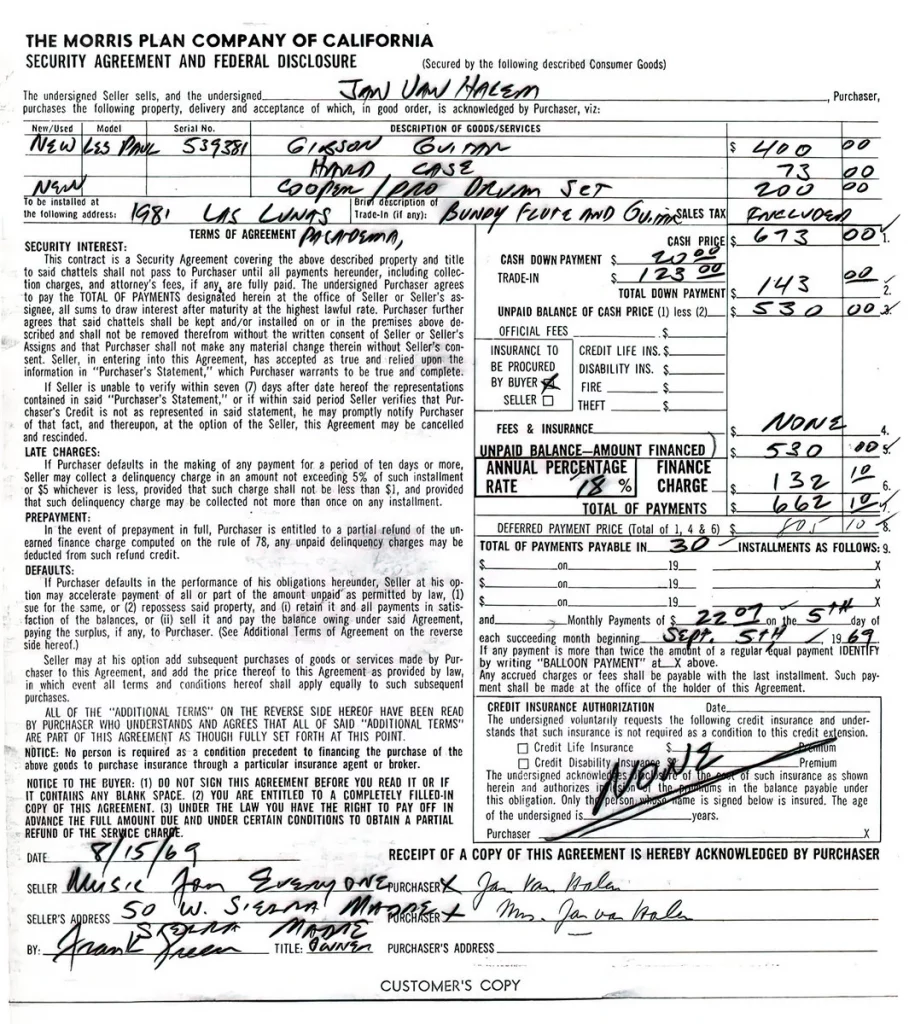 THE MORRIS PLAN COMPANY OF CALIFORNIA
SECURITY AGREEMENT AND FEDERAL DISCLOSURE (Secured by the following described Consumer Goods)
The undersigned Seller sells, and the undersigned JAN VAN HALEM, Purchaser,
purchases the following property, delivery and acceptance of which, in good order, is acknowledged by Purchaser, viz:
New/Used Model Serial No. DESCRIPTION OF GOODS/SERVICES
NEW LES PAUL 539381 GIBSON GUITAR $ 400 00
HARD CASE 73 00
NEW COOPER/PRO DRUM SET 200 00
To be installed at the following address: 1981 LAS LUNAS Brief description of Trade-In (if any): BUNDY FLUTE AND GUITAR SALES TAX INCLUDED
PACADEMA,
TERMS OF AGREEMENT
SECURITY INTEREST:
This contract is a Security Agreement covering the above described property and title
to said chattels shall not pass to Purchaser until all payments hereunder, including collec-
tion charges, and attorney's fees, if any, are fully paid. The undersigned Purchaser agrees
to pay the TOTAL OF PAYMENTS designated herein at the office of Seller or Seller's as-
signee, all sums to draw interest after maturity at the highest lawful rate. Purchaser further
agrees that said chattels shall be kept and/or installed on or in the premises above de-
scribed and shall not be removed therefrom without the written consent of Seller or Seller's
Assigns and that Purchaser shall not make any material change therein without Seller's con-
sent. Seller, in entering into this Agreement, has accepted as true and relied upon the
information in "Purchaser's Statement," which Purchaser warrants to be true and complete.
If Seller is unable to verify within seven (7) days after date hereof the representations
contained in said "Purchaser's Statement," or if within said period Seller verifies that Pur-
chaser's Credit is not as represented in said statement, he may promptly notify Purchaser
of that fact, and thereupon, at the option of the Seller, this Agreement may be cancelled
and rescinded.
LATE CHARGES:
If Purchaser defaults in the making of any payment for a period of ten days or more,
Seller may collect a delinquency charge in an amount not exceeding 5% of such installment
or $5 whichever is less, provided that such charge shall not be less than $1, and provided
that such delinquency charge may be collected not more than once on any installment.
PREPAYMENT:
In the event of prepayment in full, Purchaser is entitled to a partial refund of the un-
earned finance charge computed on the rule of 78, any unpaid delinquency charges may be
deducted from such refund credit.
DEFAULTS:
If Purchaser defaults in the performance of his obligations hereunder, Seller at his op-
tion may accelerate payment of all or part of the amount unpaid as permitted by law, (1)
sue for the same, or (2) repossess said property, and (i) retain it and all payments in satis-
faction of the balances, or (ii) sell it and pay the balance owing under said Agreement,
paying the surplus, if any, to Purchaser. (See Additional Terms of Agreement on the reverse
side hereof.)
Seller may at his option add subsequent purchases of goods or services made by Pur-
chaser to this Agreement, and add the price thereof to this Agreement as provided by law,
in which event all terms and conditions hereof shall apply equally to such subsequent
purchases.
ALL OF THE "ADDITIONAL TERMS" ON THE REVERSE SIDE HEREOF HAVE BEEN READ
BY PURCHASER WHO UNDERSTANDS AND AGREES THAT ALL OF SAID "ADDITIONAL TERMS"
ARE PART OF THIS AGREEMENT AS THOUGH FULLY SET FORTH AT THIS POINT.
NOTICE: No person is required as a condition precedent to financing the purchase of the
above goods to purchase insurance through a particular insurance agent or broker.
NOTICE TO THE BUYER: (1) DO NOT SIGN THIS AGREEMENT BEFORE YOU READ IT OR IF
IT CONTAINS ANY BLANK SPACE. (2) YOU ARE ENTITLED TO A COMPLETELY FILLED-IN
COPY OF THIS AGREEMENT. (3) UNDER THE LAW YOU HAVE THE RIGHT TO PAY OFF IN
ADVANCE THE FULL AMOUNT DUE AND UNDER CERTAIN CONDITIONS TO OBTAIN A PARTIAL
REFUND OF THE SERVICE CHARGE.
CASH PRICE $ 673 00 1.
CASH DOWN PAYMENT $ 20 00
TRADE-IN $ 123 00
TOTAL DOWN PAYMENT $ 143 00 2.
UNPAID BALANCE OF CASH PRICE (1) less (2) $ 530 00 3.
OFFICIAL FEES $
INSURANCE TO BE PROCURED BY BUYER SELLER
CREDIT LIFE INS. $
DISABILITY INS. $
FIRE $
THEFT $
FEES & INSURANCE $ NONE 4.
UNPAID BALANCE—AMOUNT FINANCED $ 530 00 5.
ANNUAL PERCENTAGE RATE 18 % FINANCE CHARGE $ 132 10 6.
TOTAL OF PAYMENTS $ 662 10 7.
DEFERRED PAYMENT PRICE (Total of 1, 4 & 6) $ 805 10 8.
TOTAL OF PAYMENTS PAYABLE IN 30 INSTALLMENTS AS FOLLOWS: 9.
$ on 19 X
$ on 19 X
$ on 19 X
and Monthly Payments of $ 22 07 on the 5TH day of
each succeeding month beginning SEPT. 5TH 1969
If any payment is more than twice the amount of a regular equal payment IDENTIFY
by writing "BALLOON PAYMENT" at X above.
Any accrued charges or fees shall be payable with the last installment. Such pay-
ment shall be made at the office of the holder of this Agreement.
CREDIT INSURANCE AUTHORIZATION Date
The undersigned voluntarily requests the following credit insurance and under-
stands that such insurance is not required as a condition to this credit extension.
Credit Life Insurance $ Premium
Credit Disability Insurance $ Premium
NONE
The undersigned acknowledges disclosure of the cost of such insurance as shown
herein and authorizes inclusion of the premiums in the balance payable under
this obligation. Only the person whose name is signed below is insured. The age
of the undersigned is years.
Purchaser X
DATE 8/15/69 RECEIPT OF A COPY OF THIS AGREEMENT IS HEREBY ACKNOWLEDGED BY PURCHASER
SELLER Music For Everyone PURCHASER X Jan Van Halen
SELLER'S ADDRESS 50 W. SIERRA MADRE PURCHASER X Mrs. Jan van Halen
SIERRA MADRE
BY: Frank Green TITLE: OWNER PURCHASER'S ADDRESS
CUSTOMER'S COPY